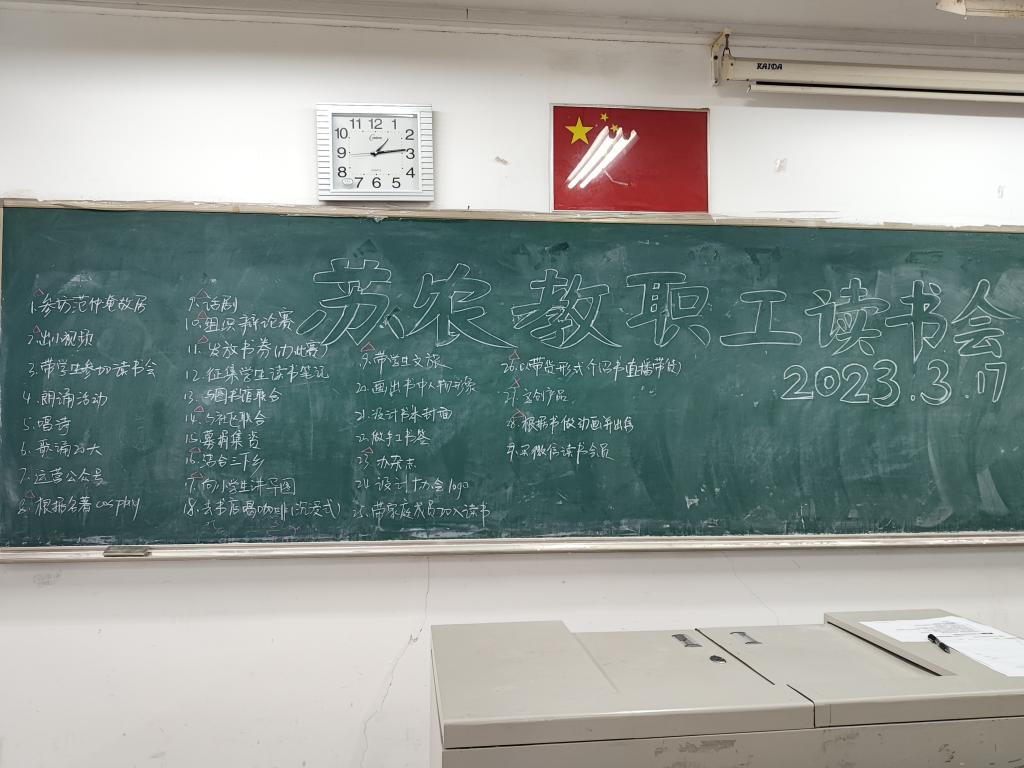 KAIDA
11 12 1
10 2
9 3
8 4
7 6 5
苏农教职工读书会
2023.3.17
1.参访范仲淹故居
2.出小视频
3.带学生参加读书会
4.朗诵活动
5.唱诗
6.歌诵二十大
7.运营公众号
8.根据名著cosplay
9.话剧
10.组织辩论赛
11.发放书券(办比赛)
12.征集学生读书笔记
13.与图书馆联合
14.与社区联合
15.募捐集资
16.结合三下乡
17.向小学生讲
18.去书店喝咖啡(沉浸式)
19.带学生文旅
20.画出书中人物形象
21.设计书本封面
22.做手工书签
23.办杂志
24.设计协会logo
25.带家庭成员加入读书
26.以带货形式介绍书(直播带货)
27.文创产品
28.根据书做动画并出售
29.买微信读书会员